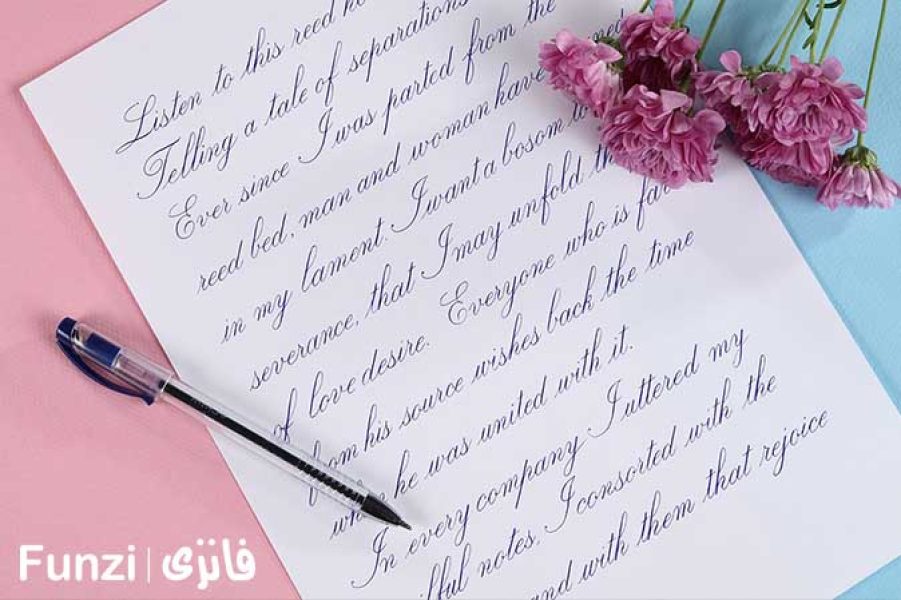 Listen to this reed
Telling a tale of separations
Ever since I was parted from the
reed bed, man and woman have
in my lament. I want a bosom
severance, that I may unfold
of love desire. Everyone who is far
from his source wishes back the time
when he was united with it.
In every company I uttered my
notes. I consorted with the
and with them that rejoice
Funzi | فانزی